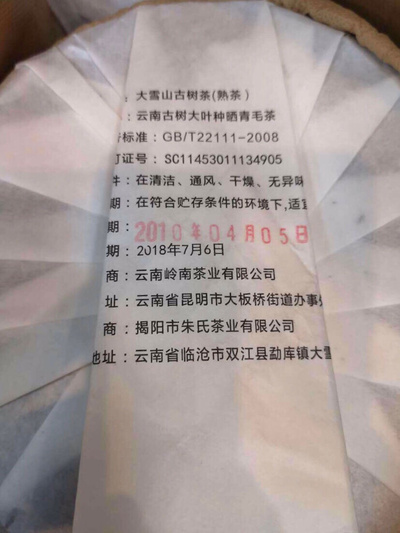 : 大雪山古树茶(熟茶)
: 云南古树大叶种晒青毛茶
标准: GB/T22111-2008
可证号: SC11453011134905
件: 在清洁、通风、干燥、无异味
期: 在符合贮存条件的环境下,适宜
期: 2010年04月05日
期: 2018年7月6日
商: 云南岭南茶业有限公司
址: 云南省昆明市大板桥街道办事处
商: 揭阳市朱氏茶业有限公司
地址: 云南省临沧市双江县勐库镇大雪